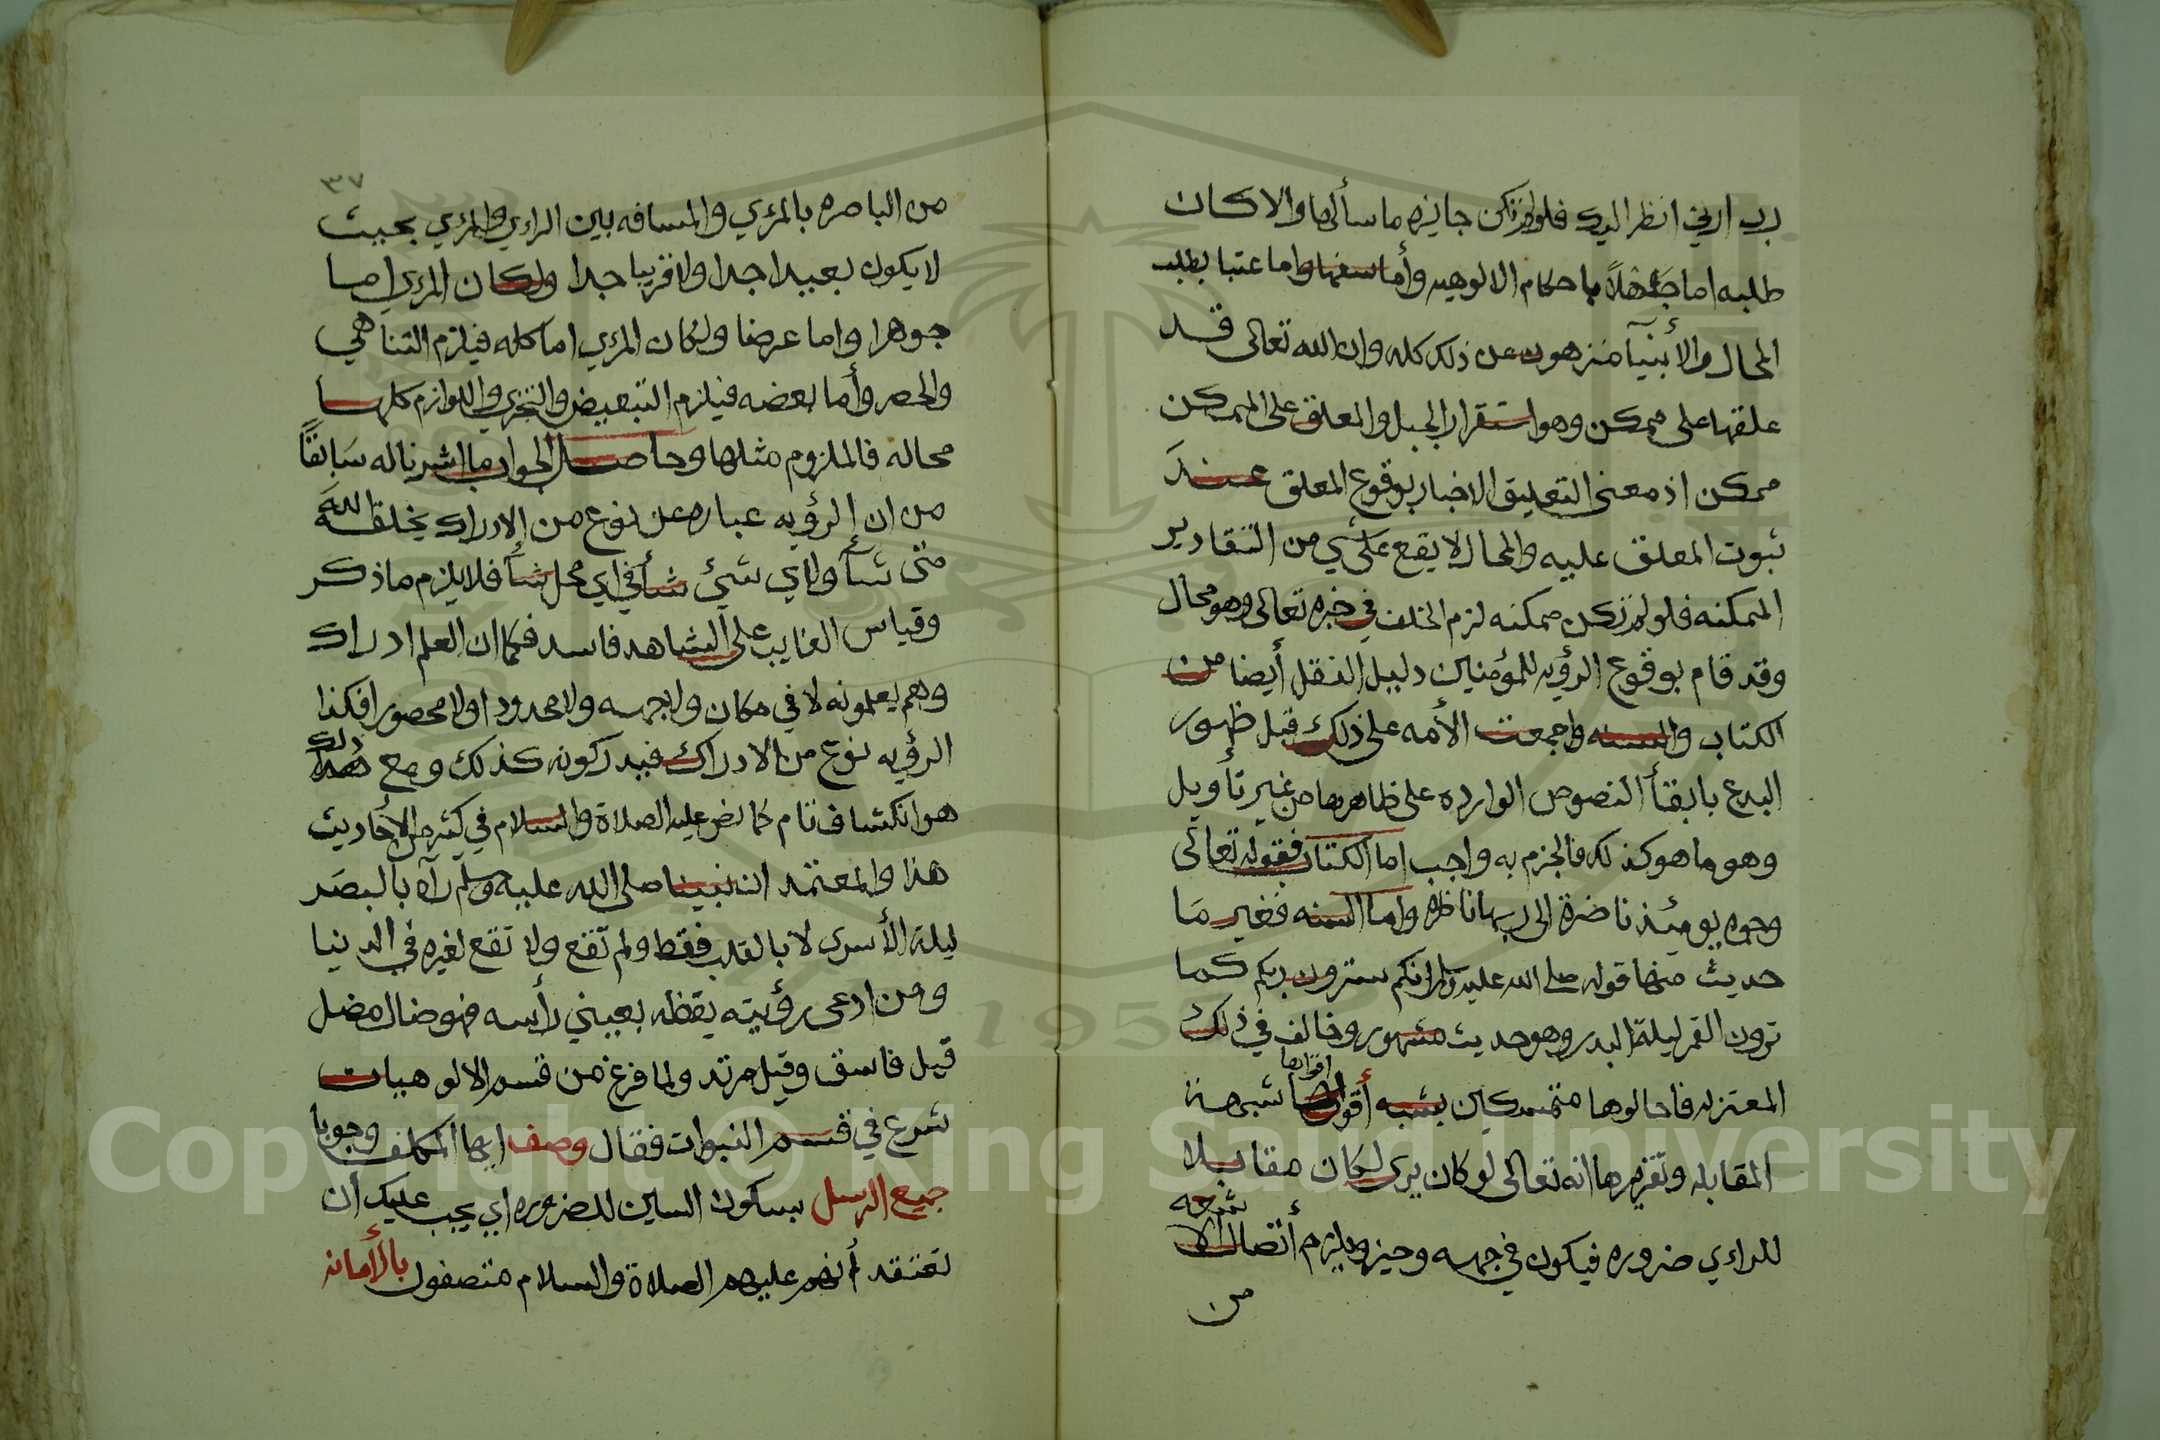 رب ارني انظر اليك فلولم تكن جايزه ما سألها والا كان
طلبه اما جهلاً باحكام الالوهيه وأما سفها واما عبثا بطلب
المحال والأنبيآ منزهون عن ذلك كله وان الله تعالى قد
علقها على ممكن وهو استقرار الجبل والمعلق على الممكن
ممكن اذ معنى التعليق الاخبار بوقوع المعلق عند
ثبوت المعلق عليه والمحال لا يقع على شي من التقادير
الممكنه فلولم تكن ممكنه لزم الخلف في خبره تعالى وهو محال
وقد قام بوقوع الرؤيه للمؤمنين دليل النقل أيضا من
الكتاب والسنه واجمعت الأمه على ذلك قبل ظهور
البدع بابقأ النصوص الوارده على ظاهرها من غير تأويل
وهو ما هو كذلك فالجزم به واجب اما الكتاب فقوله تعالى
وجوه يومئذ ناضرة الى ربها ناظره واما السنه فغير مَا
حديث منها قوله صلى الله عليه وسلم انكم سترون ربكم كما
ترون القمر ليلة البدر وهو حديث مشهور وخالف في ذلك
المعتزله فاحالوها متمسكين بشبه أقواها شبهة
اقواها
المقابله وتقريرها انه تعالى لو كان يرى لكان مقابلا
للراءي ضروره فيكون في جهه وحيز ويلزم أتصال الأ
شعه
من
٣٧
من الباصره بالمرءي والمسافه بين الراءي والمرءي بحيث
لا يكون بعيدا جدا ولا قريبا جدا ولكان المرءي اما
جوهرا واما عرضا ولكان المرءي اما كله فيلزم التناهي
والحصر وأما بعضه فيلزم التبعيض والتجزي واللوازم كلها
محاله فالملزوم مثلها وحاصل الجواب ما اشرنا له سَابقًا
من ان الرؤيه عباره عن نوع من الادراك يخلقه اللهَ
متى شآ ولاي شئ شأ في اي محل شأ فلا يلزم ما ذكر
وقياس الغايب على الشاهد فاسد فكما ان العلم ادراك
وهم يعلمونه لا في مكان ولا جهه ولا محدودا ولا محصورا فكذا
الرؤيه نوع من الادراك فيدركونه كذلك ومع هذا
ذلك
هو انكشاف تام كما نص عليه الصلاة والسلام في كثير من الأحاديث
هذا والمعتمد ان نبينا صلى الله عليه وسلم رآه بالبصَر
ليلة الأسرى لا بالقلب فقط ولم تقع ولا تقع لغيره في الدنيا
ومن ادعى رؤيته يقظه بعيني رأسه فهو ضال مضل
قيل فاسق وقيل مرتد ولما فرغ من قسم الالوهيات
شرع في قسم النبوات فقال وصف ايها المكلف وجوبا
جميع الرسل بسكون السين للضروره اي يجب عليك ان
تعتقد أنهم عليهم الصلاة والسلام متصفون بالأمانه
Copyright © King Saud University
195